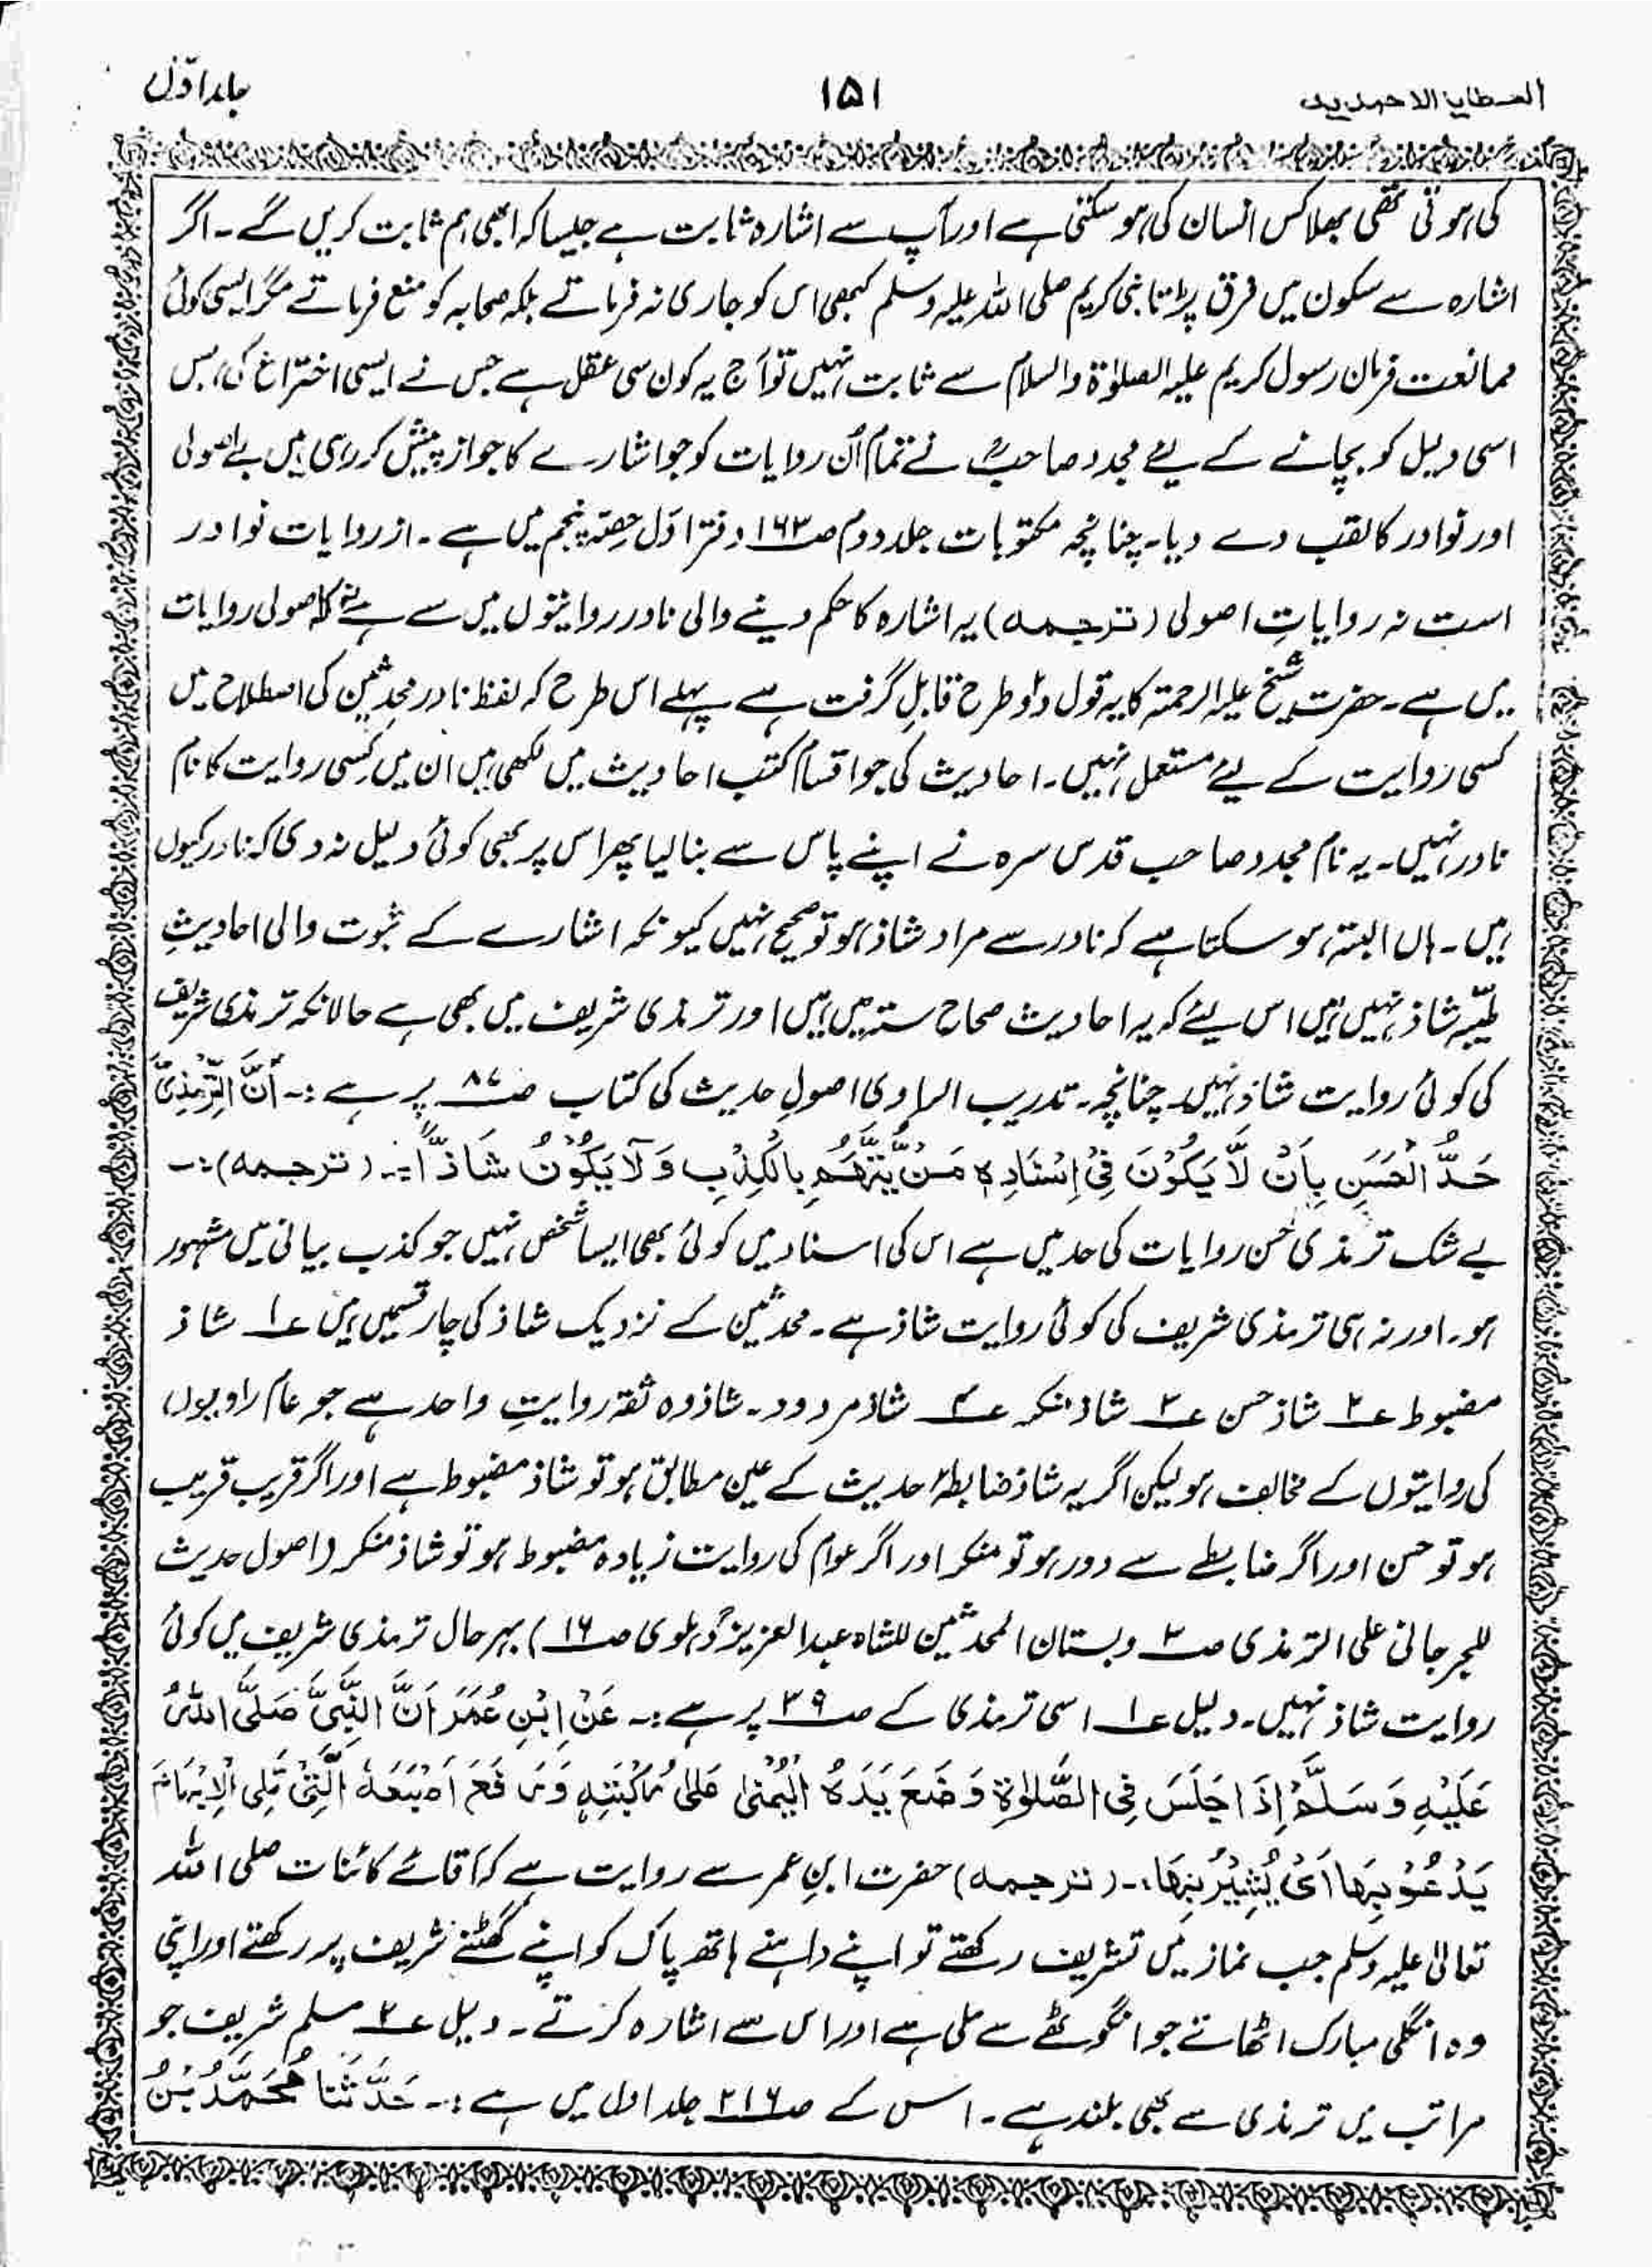 العطایا الاحمدیہ ۱۵۱ جلد اوّل
کی ہوتی تھی بھلا کس انسان کی ہو سکتی ہے اور آپ سے اشارہ ثابت ہے جیسا کہ ابھی ہم ثابت کریں گے۔ اگر
اشارہ سے سکون میں فرق پڑتا نبی کریم صلی اللہ علیہ وسلم کبھی اس کو جاری نہ فرماتے بلکہ صحابہ کو منع فرماتے مگر ایسی کوئی
ممانعت فرمان رسول کریم علیہ الصلوٰۃ والسلام سے ثابت نہیں تو آج یہ کون سی عقل ہے جس نے ایسی اختراع کی، بس
اسی دلیل کو بچانے کے لیے مجدد صاحبؒ نے تمام اُن روایات کو جو اشارے کا جواز پیش کر رہی ہیں بے اصولی
اور نوادر کا لقب دے دیا۔ چنانچہ مکتوبات جلد دوم صـ۱۶۳ دفتر اوّل حصّہ پنجم میں ہے۔ از روایات نوادر
است نہ روایاتِ اصولی (ترجمہ) یہ اشارہ کا حکم دینے والی نادر روایتوں میں سے ہے نہ کہ اصولی روایات
میں ہے۔ حضرت شیخ علیہ الرحمۃ کا یہ قول دو طرح قابلِ گرفت ہے پہلے اس طرح کہ لفظ نادر محدثین کی اصطلاح میں
کسی روایت کے لیے مستعمل نہیں۔ احادیث کی جو اقسام کتب احادیث میں لکھی ہیں ان میں کِسی روایت کا نام
نادر نہیں۔ یہ نام مجدد صاحب قدس سرہ نے اپنے پاس سے بنا لیا پھر اس پر بھی کوئی دلیل نہ دی کہ نادر کیوں
ہیں۔ ہاں البتہ ہو سکتا ہے کہ نادر سے مراد شاذ ہو تو صحیح نہیں کیونکہ اشارے کے ثبوت والی احادیثِ
طیّبہ شاذ نہیں ہیں اس لیئے کہ یہ احادیث صحاح ستہ میں ہیں اور ترمذی شریف میں بھی ہے حالانکہ ترمذی شریف
کی کوئی روایت شاذ نہیں۔ چنانچہ۔ تدریب الراوی اصولِ حدیث کی کتاب صـ۸۷ پر ہے :۔ أَنَّ التِّرْمِذِيَّ
حَدُّ الْحَسَنِ بِأَنْ لَّا يَكُوْنَ فِيْ اِسْنَادِهٖ مَنْ يُّتَّهَمُ بِالْكِذْبِ وَلَا يَكُوْنُ شَاذًّا۔ (ترجمہ):۔
بے شک ترمذی حَسن روایات کی حد میں ہے اس کی اسناد میں کوئی بھی ایسا شخص نہیں جو کذب بیانی میں مشہور
ہو۔ اور نہ ہی ترمذی شریف کی کوئی روایت شاذ ہے۔ محدثین کے نزدیک شاذ کی چار قسمیں ہیں عـ۱ شاذ
مضبوط عـ۲ شاذ حسن عـ۳ شاذ منکر عـ۴ شاذ مردود۔ شاذ وہ ثقہ روایتِ واحد ہے جو عام راویوں
کی روایتوں کے مخالف ہو لیکن اگر یہ شاذ ضابطۂ حدیث کے عین مطابق ہو تو شاذ مضبوط ہے اور اگر قریب قریب
ہو تو حسن اور اگر ضابطے سے دور ہو تو منکر اور اگر عوام کی روایت زیادہ مضبوط ہو تو شاذ منکر (اصول حدیث
للجرجانی علی الترمذی صـ۳ و بستان المحدثین للشاہ عبدالعزیز دہلوی صـ۱۶) بہر حال ترمذی شریف میں کوئی
روایت شاذ نہیں۔ دلیل عـ۱ اسی ترمذی کے صـ۳۹ پر ہے:۔ عَنْ اِبْنِ عُمَرَ اَنَّ النَّبِيَّ صَلَّى اللهُ
عَلَيْهِ وَسَلَّمَ اِذَا جَلَسَ فِي الصَّلٰوةِ وَضَعَ يَدَهُ الْيُمْنٰى عَلٰى رُكْبَتِهٖ وَرَفَعَ اَصْبَعَهُ الَّتِيْ تَلِي الْاِبْهَامَ
يَدْعُوْ بِهَا اَىْ يُشِيْرُ بِهَا،۔ (ترجمہ) حضرت ابنِ عمر سے روایت ہے کہ آقائے کائنات صلی اللہ
تعالیٰ علیہ وسلم جب نماز میں تشریف رکھتے تو اپنے داہنے ہاتھ پاک کو اپنے گھٹنے شریف پر رکھتے اور اپنی
وہ انگلی مبارک اٹھاتے جو انگوٹھے سے ملی ہے اور اس سے اشارہ کرتے۔ دلیل عـ۲ مسلم شریف جو
مراتب میں ترمذی سے بھی بلند ہے۔ اس کے صـ۲۱۶ جلد اول میں ہے :۔ حَدَّثَنَا مُحَمَّدُ بْنُ